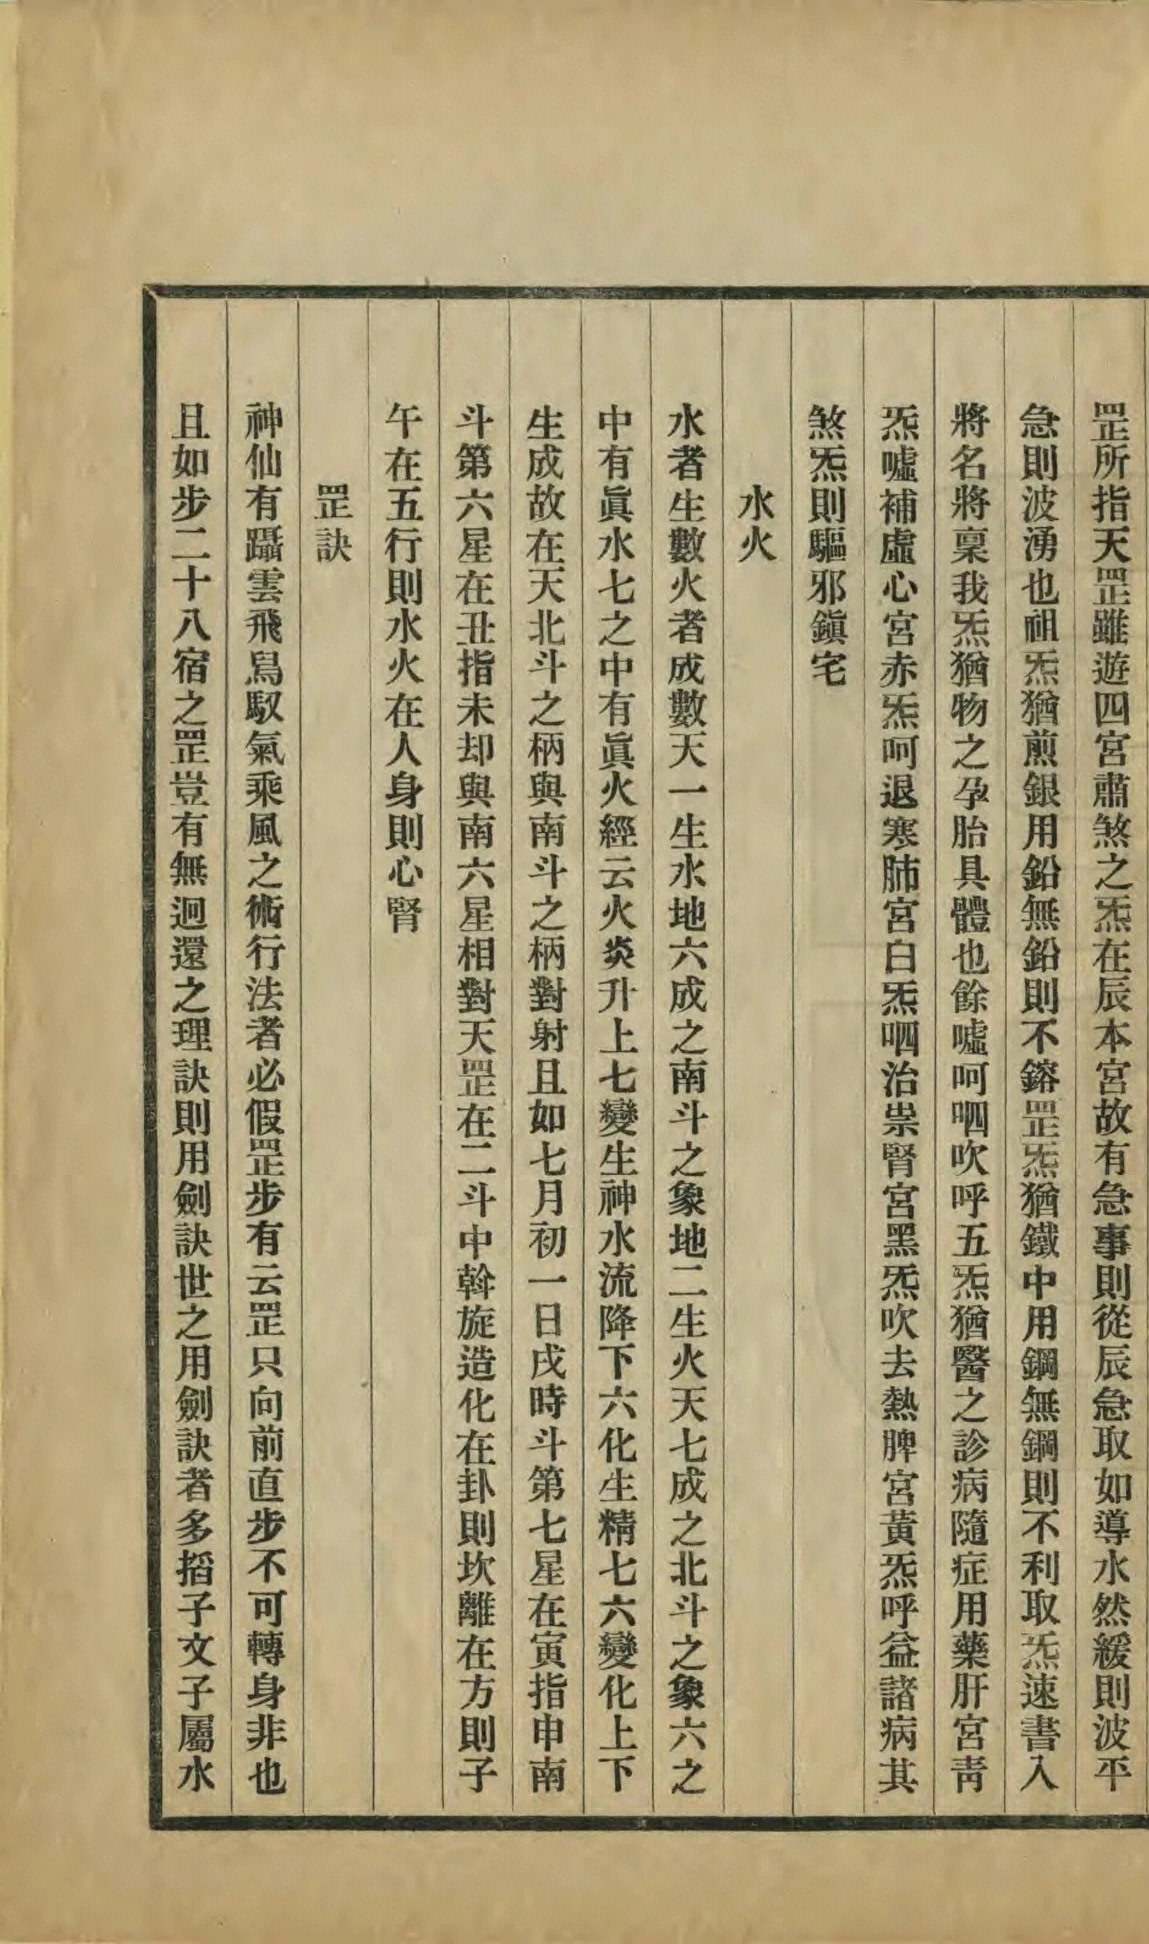 罡所指天罡雖遊四宮肅煞之炁在辰本宮故有急事則從辰急取如導水然緩則波平
急則波湧也祖炁猶煎銀用鉛無鉛則不鎔罡炁猶鐵中用鋼無鋼則不利取炁速書入
將名將稟我炁猶物之孕胎具體也餘噓呵呬吹呼五炁猶醫之診病隨症用藥肝宮靑
炁噓補虛心宮赤炁呵退寒肺宮白炁呬治祟腎宮黑炁吹去熱脾宮黃炁呼益諸病其
煞炁則驅邪鎭宅
水火
水者生數火者成數天一生水地六成之南斗之象地二生火天七成之北斗之象六之
中有眞水七之中有眞火經云火炎升上七變生神水流降下六化生精七六變化上下
生成故在天北斗之柄與南斗之柄對射且如七月初一日戌時斗第七星在寅指申南
斗第六星在丑指未却與南六星相對天罡在二斗中斡旋造化在卦則坎離在方則子
午在五行則水火在人身則心腎
罡訣
神仙有躡雲飛舃馭氣乘風之術行法者必假罡步有云罡只向前直步不可轉身非也
且如步二十八宿之罡豈有無迴還之理訣則用劍訣世之用劍訣者多搯子文子屬水